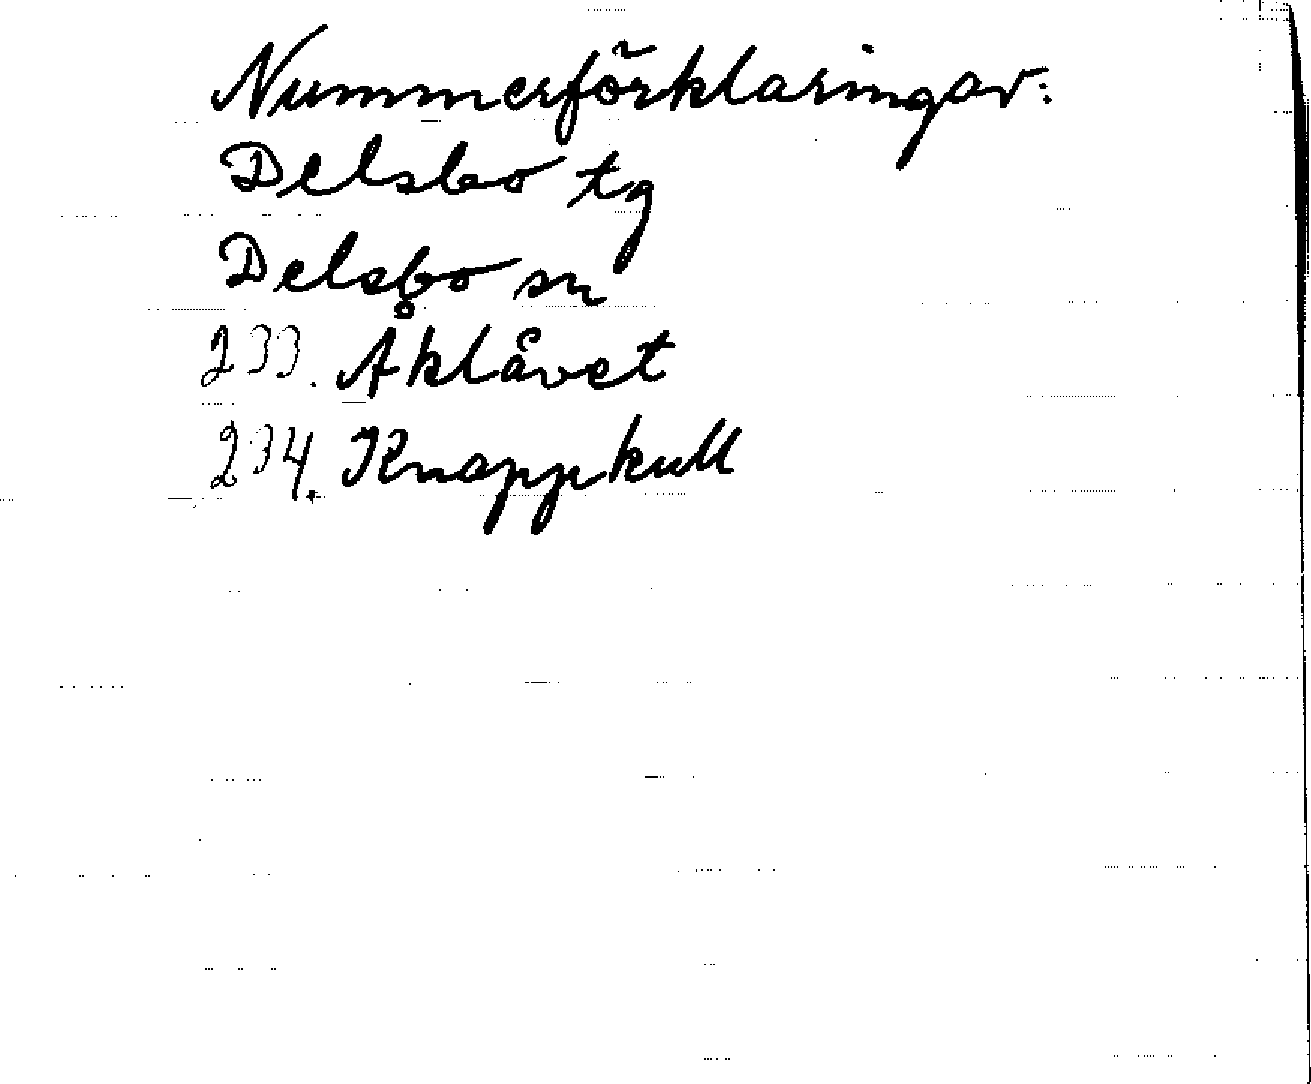 Nummerförklaringar:
Delsbo tg
Delsbo sn
233. Åklåvet
234. Knappkull